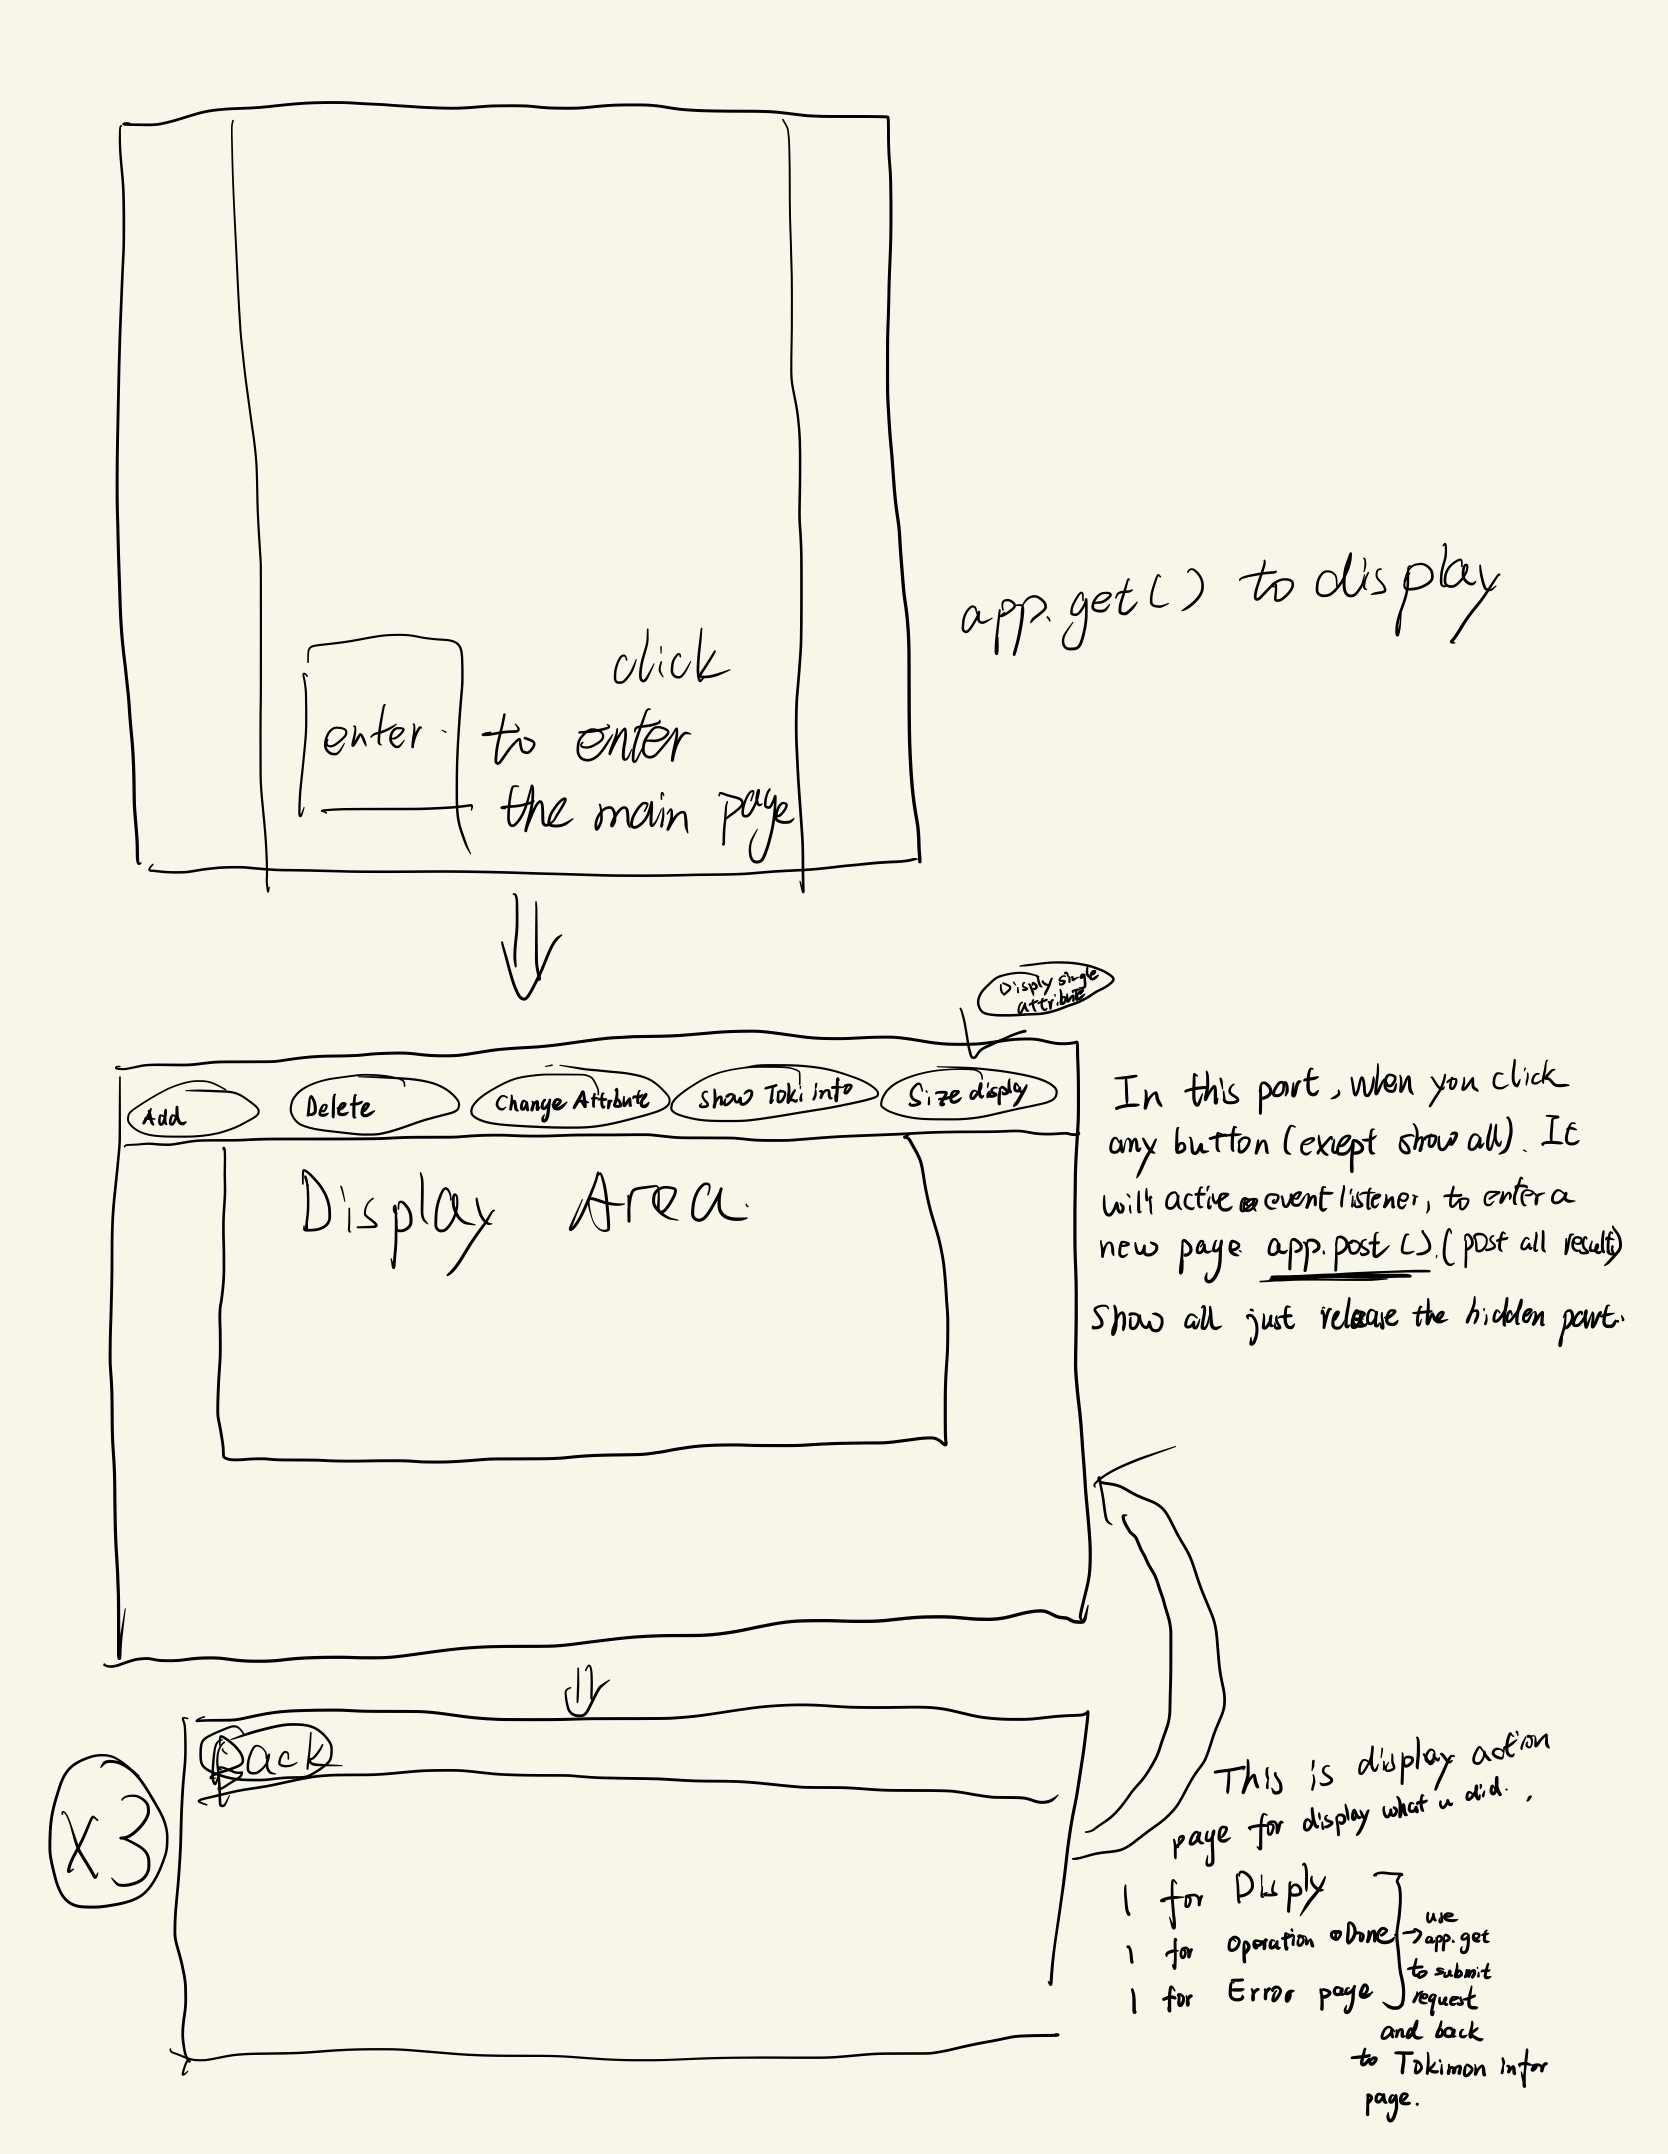 app.get() to display
click
enter. to enter
the main page
Disply single
attribute
Add
Delete
Change Attribute
Show Toki info
Size display
Display Area.
In this part, when you click
any button (except show all). It
will active event listener, to enter a
new page. app.post(). (post all result)
Show all just release the hidden part.
Back
X3
This is display action
page for display what u did.
1 for Disply
1 for Operation Done
1 for Error page
→ use
app.get
to submit
request
and back
to Tokimon infor
page.